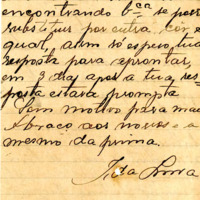 encontrando V.cê se pode
substituir por outra côr e
qual, alim só espero tua
resposta para aprontar,
em 3 dias após a tua res-
posta estará prompta
Sem motivo para mais
Abraço aos nossos e a
mesmo da prima.